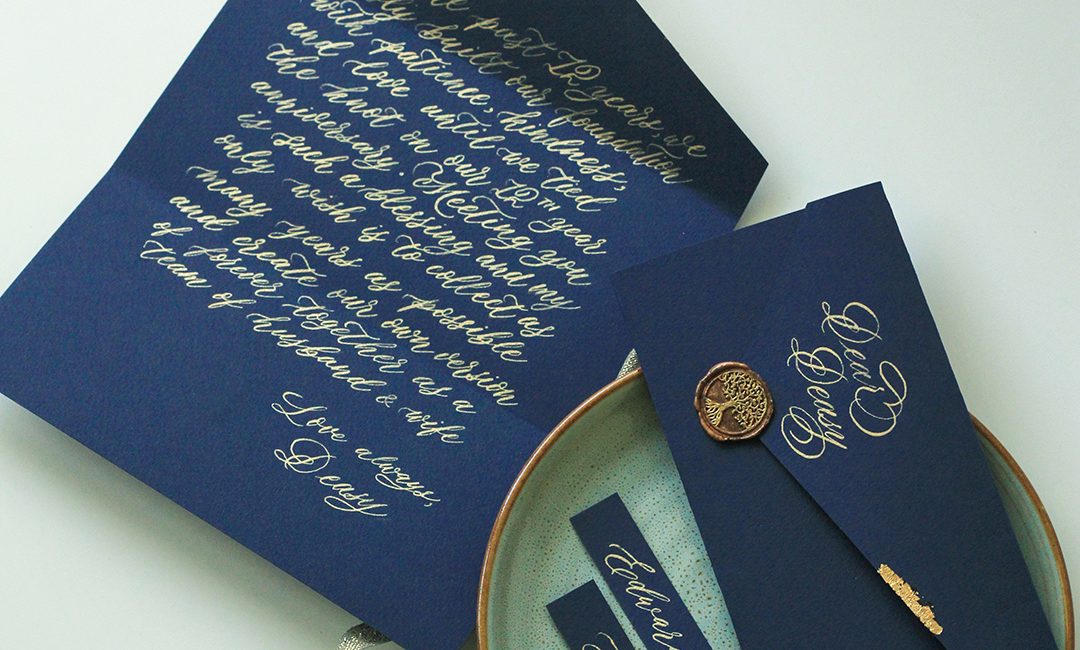 past 12 years we
built our foundation
with patience, kindness,
and love until we tied
the knot on our 12TH year
anniversary. Meeting you
is such a blessing and my
only wish is to collect as
many years as possible
and create our own version
of forever together as a
team of husband & wife
Love always,
Deasy
Dear
Deasy
Edwar